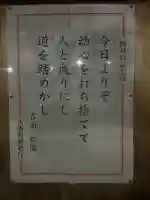 今日よりぞ
幼心を打ち捨てて
人と成りにし
道を踏めかし
吉田 松陰